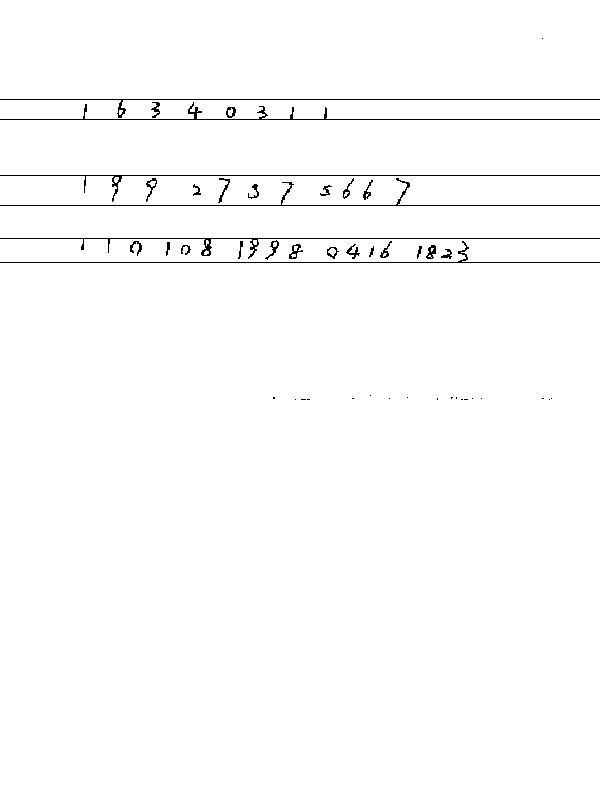 1 6 3 4 0 3 1 1
1 9 9 2 7 3 7 5 6 6 7
1 1 0 1 0 8 1 9 9 8 0 4 1 6 1 8 2 3